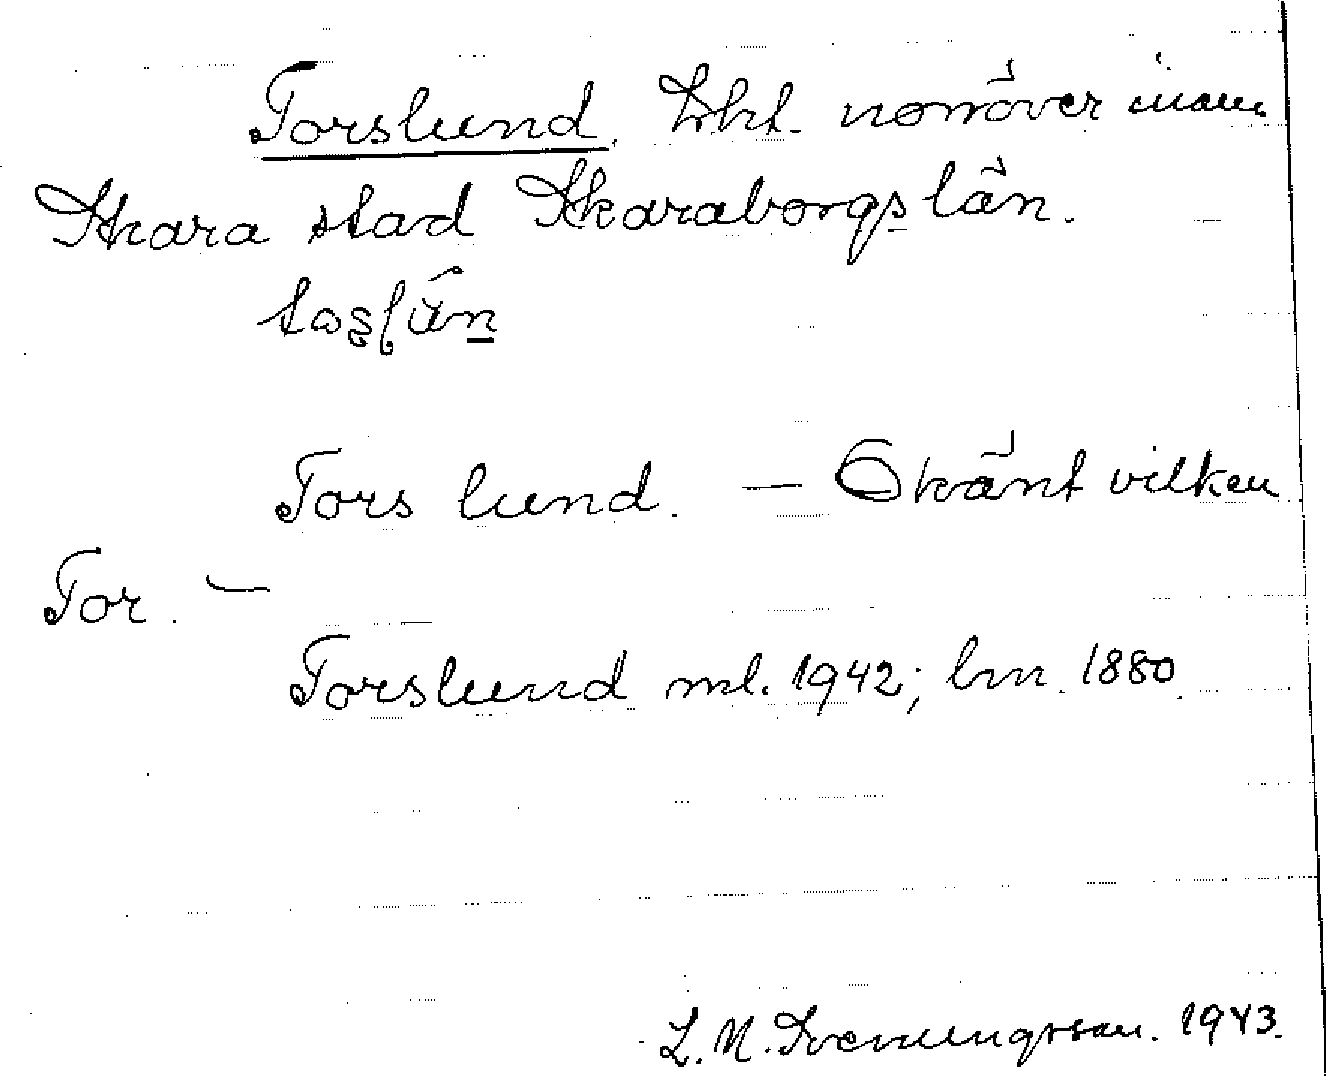 Torslund. Lht. norröver inom
Skara stad Skaraborgs län.
Tors lund. — Okänt vilken
Tor. —
Torslund ml. 1942; bm. 1880.
L. N. Svenungsson. 1943.